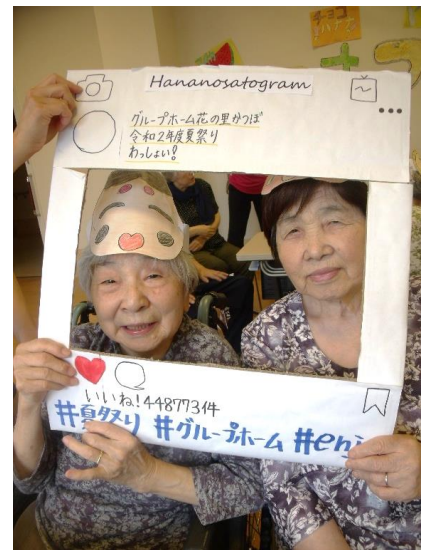 Hananosatogram
グループホーム花の里かつぽ
令和2年度夏祭り
わっしょい!
いいね!448773件
#夏祭り #グループホーム #enj